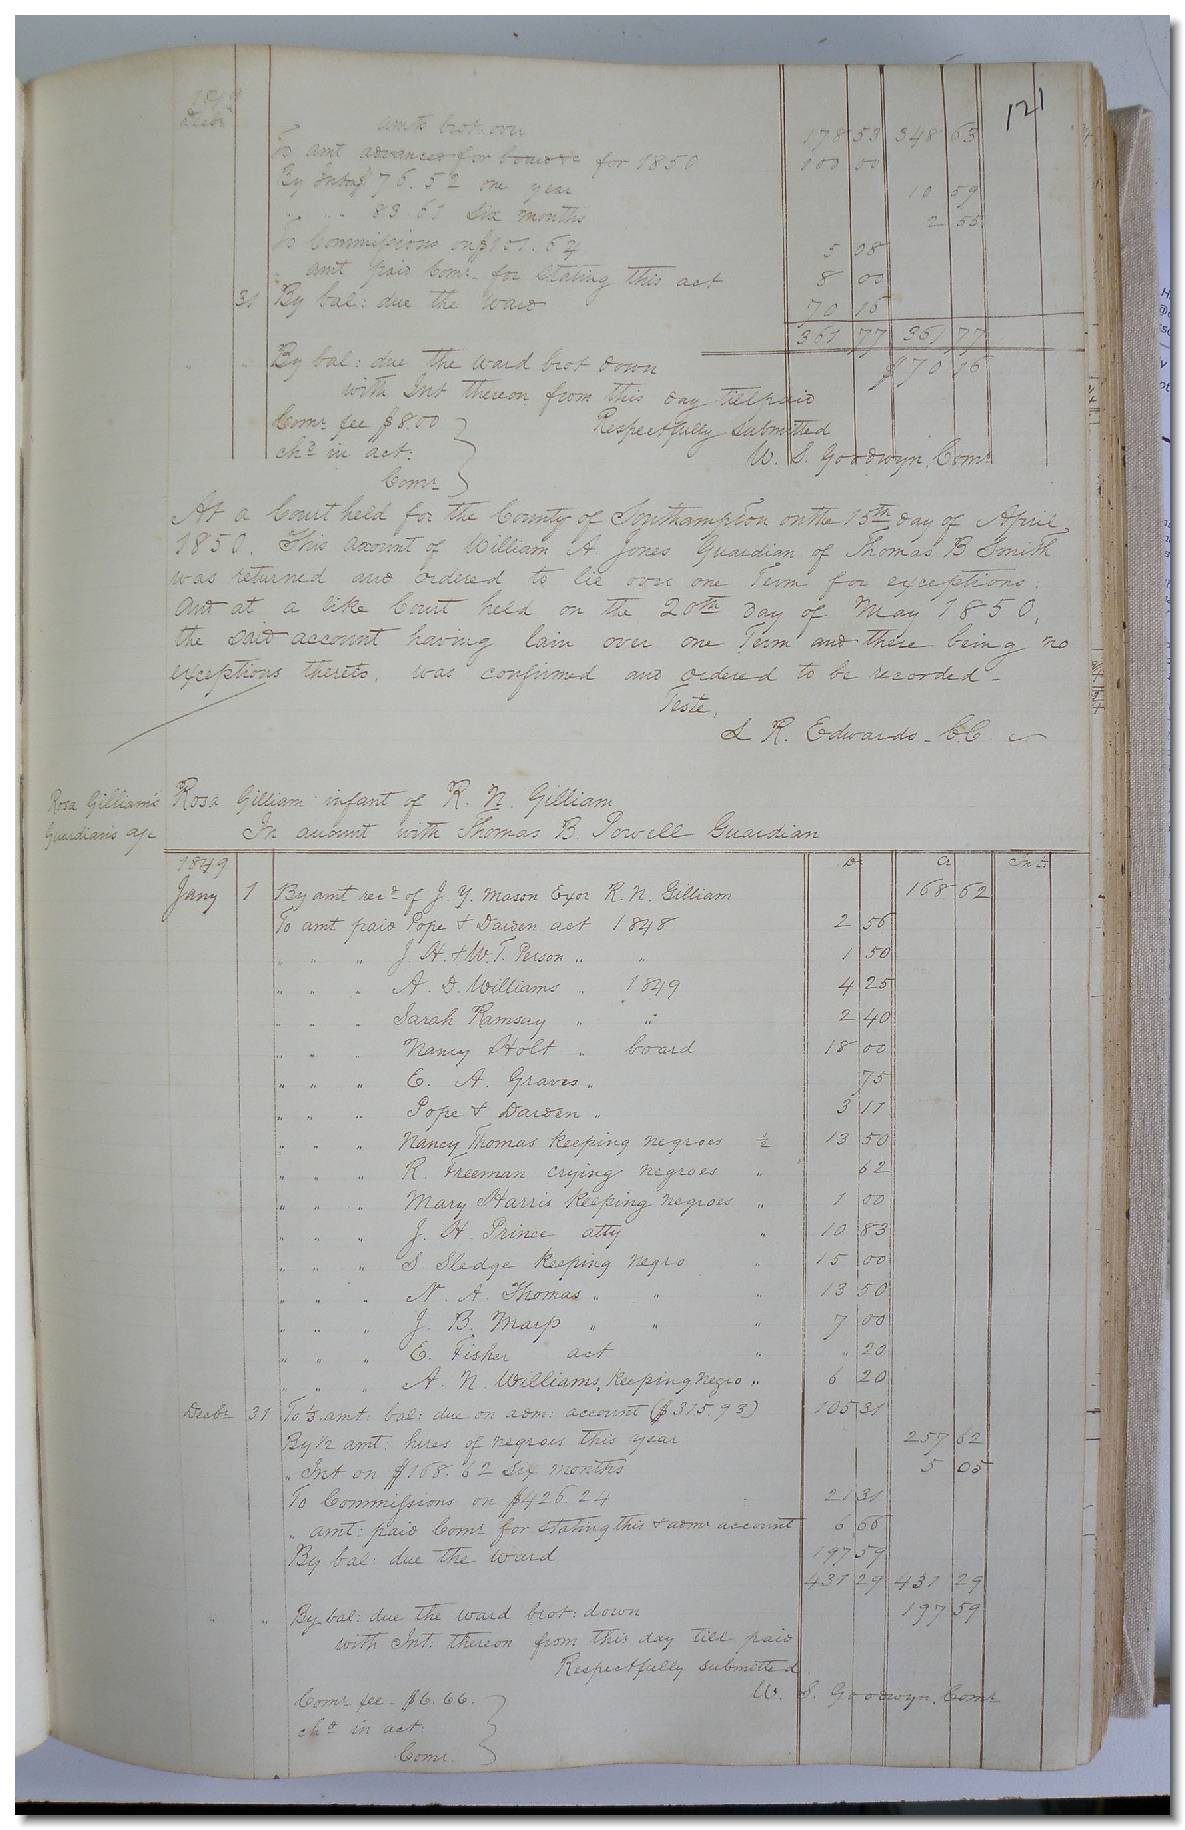 121
1849
Decbr amts brot over 178 53 348 63
To amt advanced for board &c for 1850 100 00
By Int on $76.52 one year 10 59
" " 83.61 Six months 2 55
To Commissions on $101.64 5 08
" amt paid Comr for Stating this act 8 00
31 By bal: due the ward 70 16
361 77 361 77
" " By bal: due the ward brot down $70 16
with Int thereon from this day till paid
Comr fee $8.00 Respectfully Submitted
chd in act: W. S. Goodwyn, Comr
Comr
At a Court held for the County of Southampton on the 15th day of April
1850. This account of William A Jones Guardian of Thomas B Smith
was returned and ordered to lie over one Term for exceptions;
And at a like Court held on the 20th Day of May 1850,
the said account having lain over one Term and there being no
exceptions thereto, was confirmed and ordered to be recorded -
Teste,
L R. Edwards - C.C.
Rosa Gilliam's
Guardian's a/c
Rosa Gilliam infant of R. N. Gilliam
In account with Thomas B Powell Guardian
1849 Dr Cr Int:
Jany 1 By amt recd of J. Y. Mason Exor R. N. Gilliam 168 62
To amt paid Pope & Darden act 1848 2 56
" " " J. H. & W. T. Person " " 1 50
" " " A. D. Williams " 1849 4 25
" " " Sarah Ramsay " " 2 40
" " " Nancy Holt " board 18 00
" " " E. A. Graves " 75
" " " Pope & Darden " 3 17
" " " Nancy Thomas keeping negroes ½ 13 50
" " " R. Freeman crying negroes " 62
" " " Mary Harris keeping negroes " 1 00
" " " J. H. Prince atty " 10 83
" " " S Sledge keeping negro " 15 00
" " " N. A. Thomas " " " 13 50
" " " J. B. Marp " " " 7 00
" " " E. Fisher act " " 20
" " " A. N. Williams, keeping negro " 6 20
Decbr 31 To ⅓ amt: bal: due on adm: account ($315.93) 105 31
By ½ amt: hires of negroes this year 257 62
" Int on $168.62 Six months 5 05
To Commissions on $426.24 21 31
" amt: paid Comr for stating this & admr account 6 66
By bal: due the ward 197 59
431 29 431 29
" " By bal: due the ward brot: down 197 59
with Int. thereon from this day till paid
Respectfully submitted
Comr fee - $6.66. W. S. Goodwyn, Comr
chd in act:
Comr.